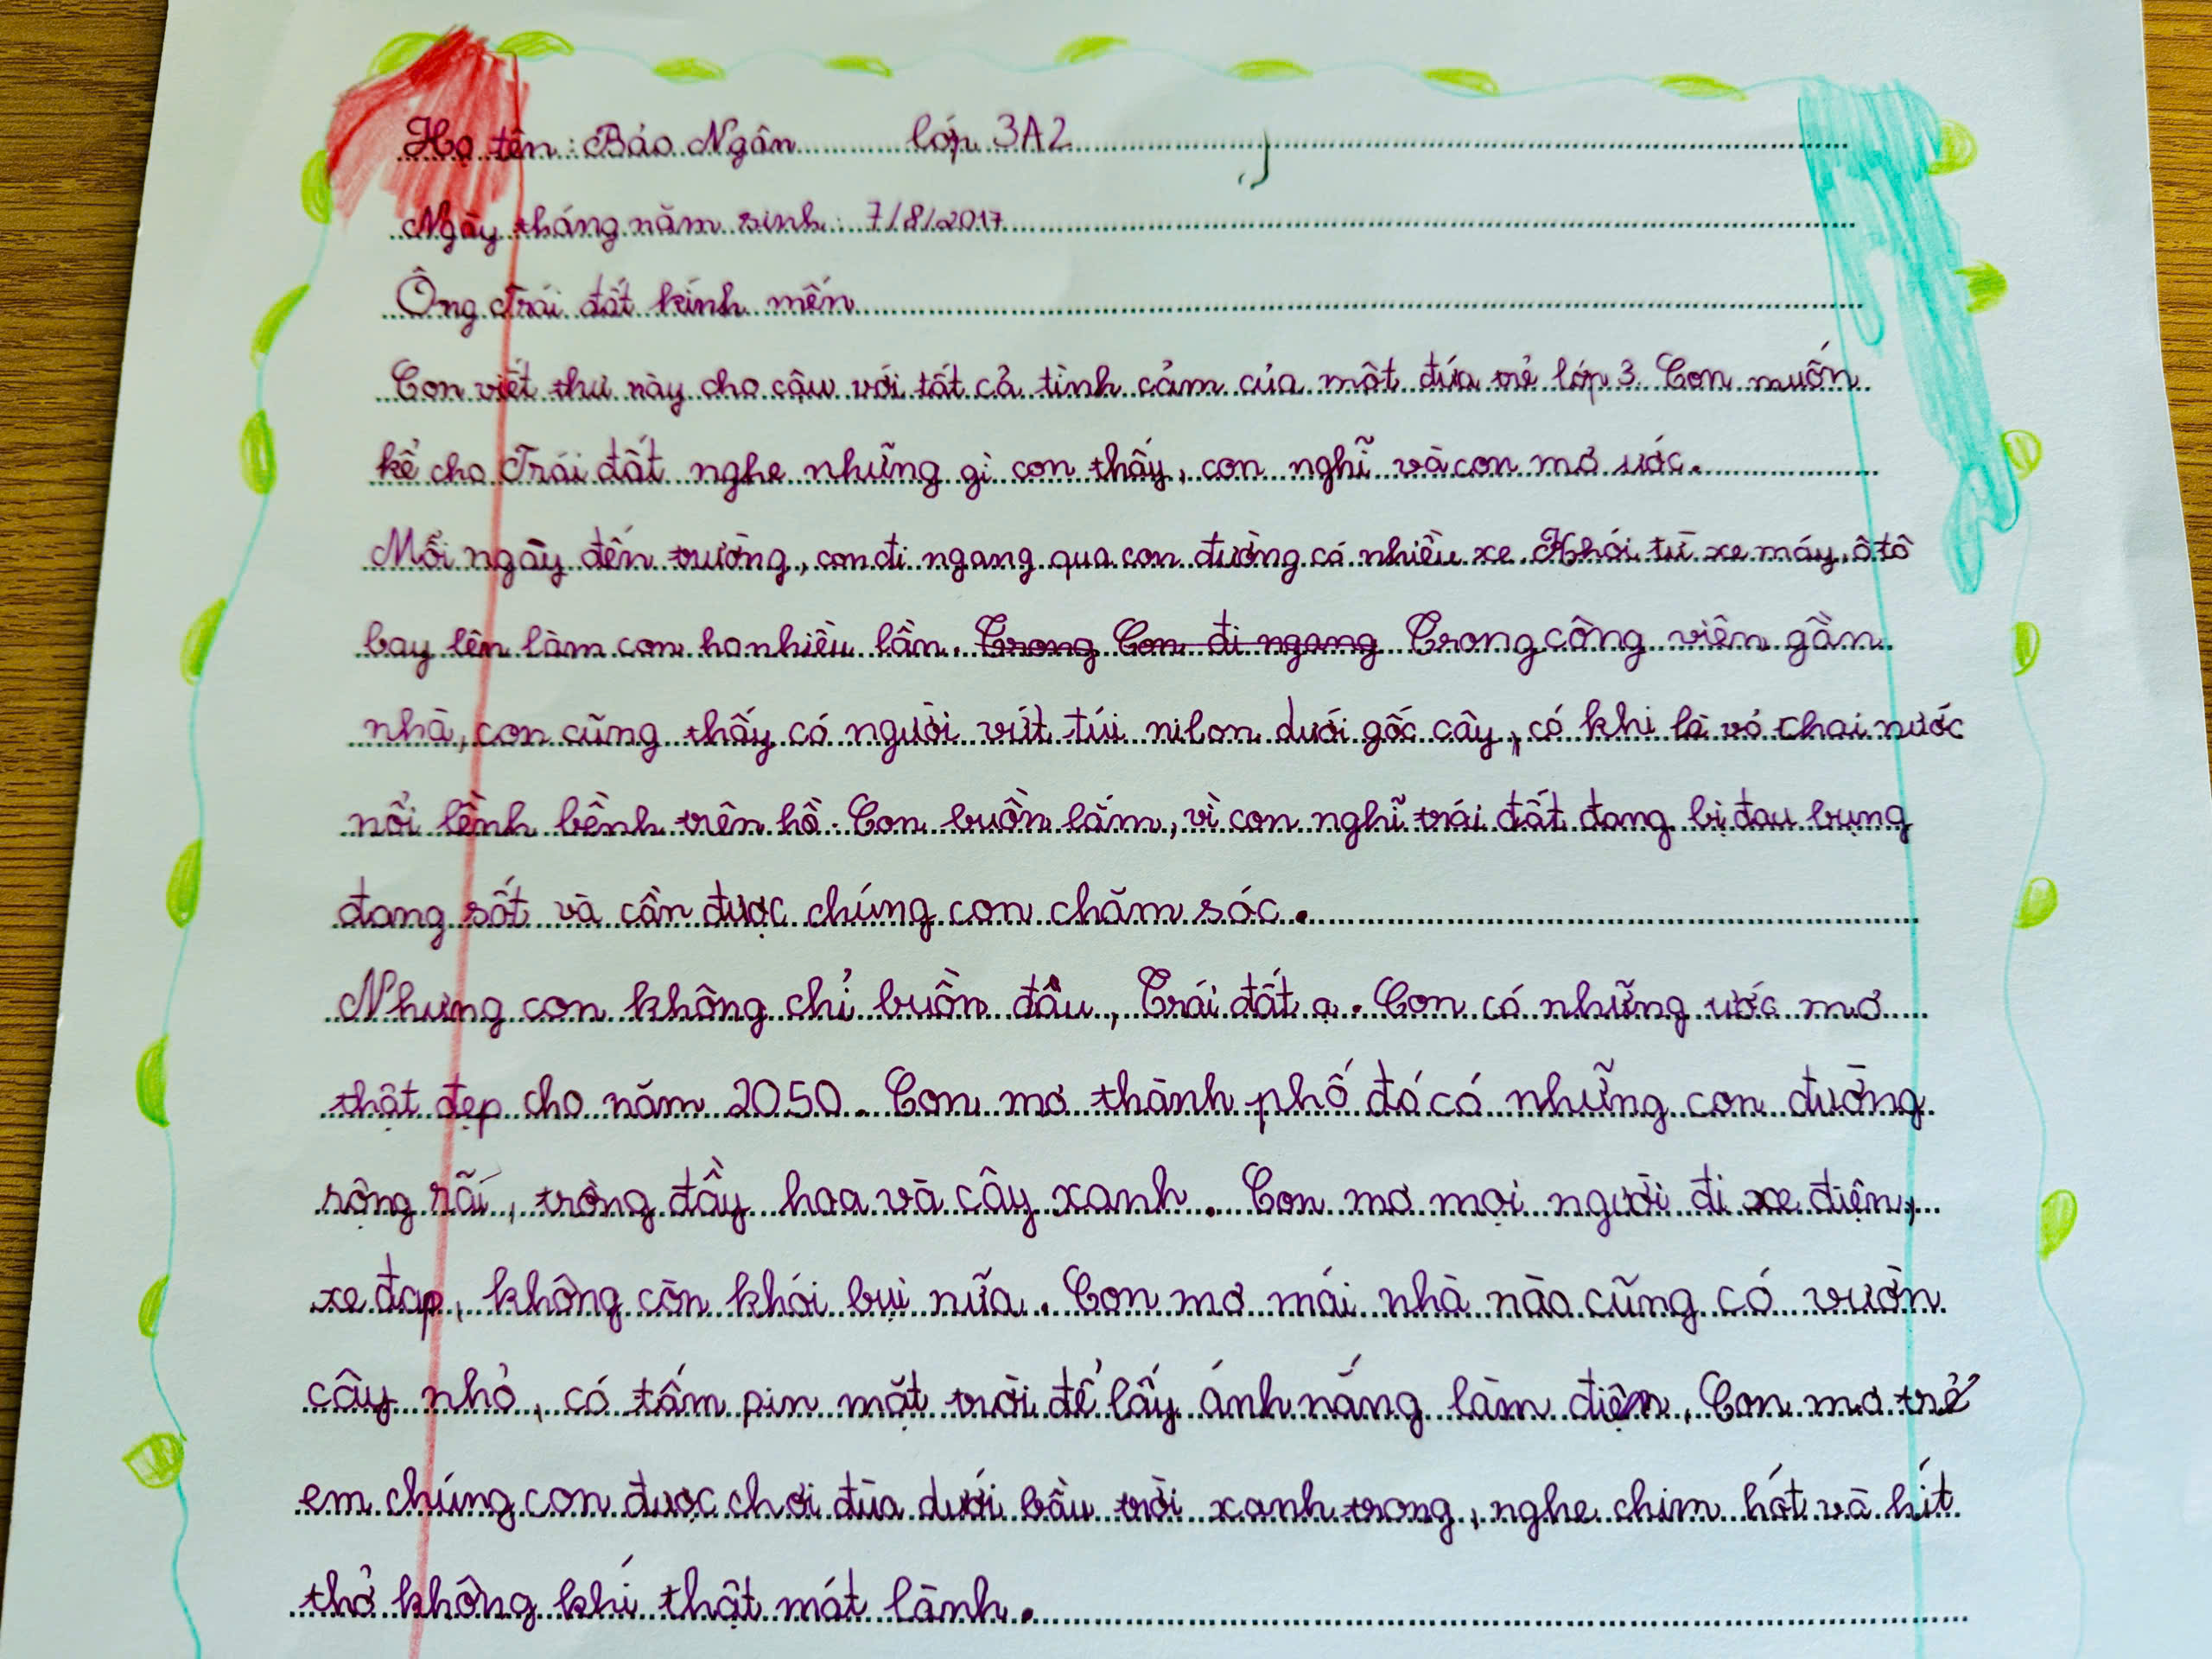 Họ tên: Bảo Ngân lớp 3A2
Ngày tháng năm sinh: 7/8/2017
Ông Trái đất kính mến
Con viết thư này cho cậu với tất cả tình cảm của một đứa trẻ lớp 3. Con muốn
kể cho Trái đất nghe những gì con thấy, con nghĩ và con mơ ước.
Mỗi ngày đến trường, con đi ngang qua con đường có nhiều xe. Khói từ xe máy, ô tô
bay lên làm con ho nhiều lần. Trong Con đi ngang Trong công viên gần
nhà, con cũng thấy có người vứt túi nilon dưới gốc cây, có khi là vỏ chai nước
nổi lềnh bềnh trên hồ. Con buồn lắm, vì con nghĩ trái đất đang bị đau bụng
đang sốt và cần được chúng con chăm sóc.
Nhưng con không chỉ buồn đâu, Trái đất ạ. Con có những ước mơ
thật đẹp cho năm 2050. Con mơ thành phố đó có những con đường
rộng rãi, trồng đầy hoa và cây xanh. Con mơ mọi người đi xe điện,
xe đạp, không còn khói bụi nữa. Con mơ mái nhà nào cũng có vườn
cây nhỏ, có tấm pin mặt trời để lấy ánh nắng làm điện. Con mơ trẻ
em chúng con được chơi đùa dưới bầu trời xanh trong, nghe chim hót và hít
thở không khí thật mát lành.